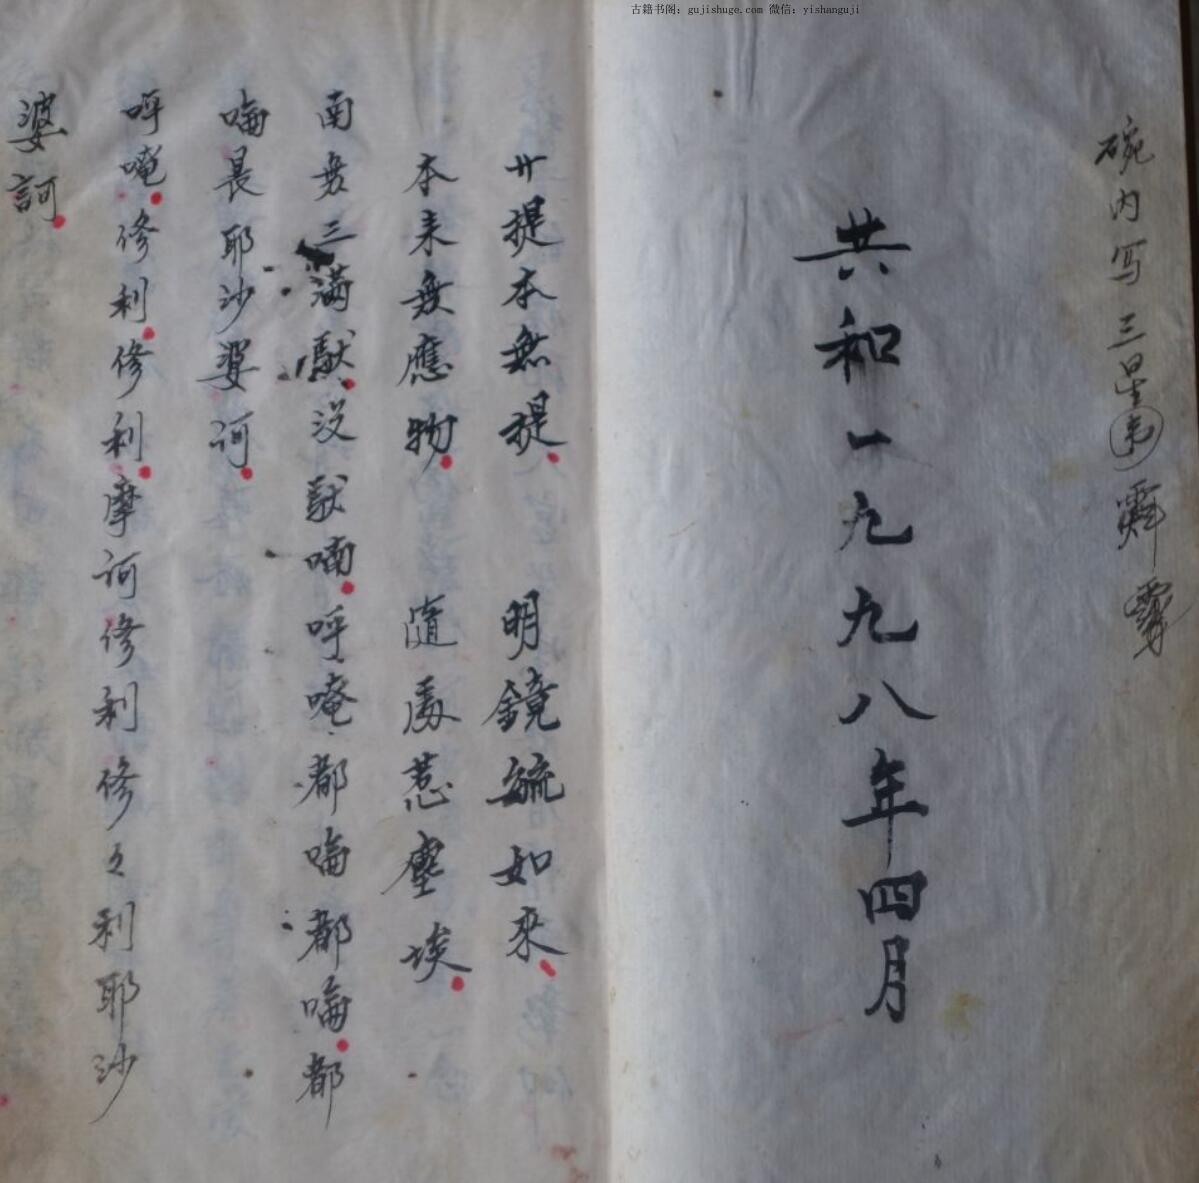 古籍书阁：gujishuge.com 微信：yishanguji
碗内写三星
共和一九九八年四月
廿提本無提明鏡毓如來
本来無應物隨處惹塵埃
南無三滿馱没馱喃呼唵都嚕都嚕都
嚕晨耶沙婆訶
呼唵修利修利摩訶修利修々利耶沙
婆訶